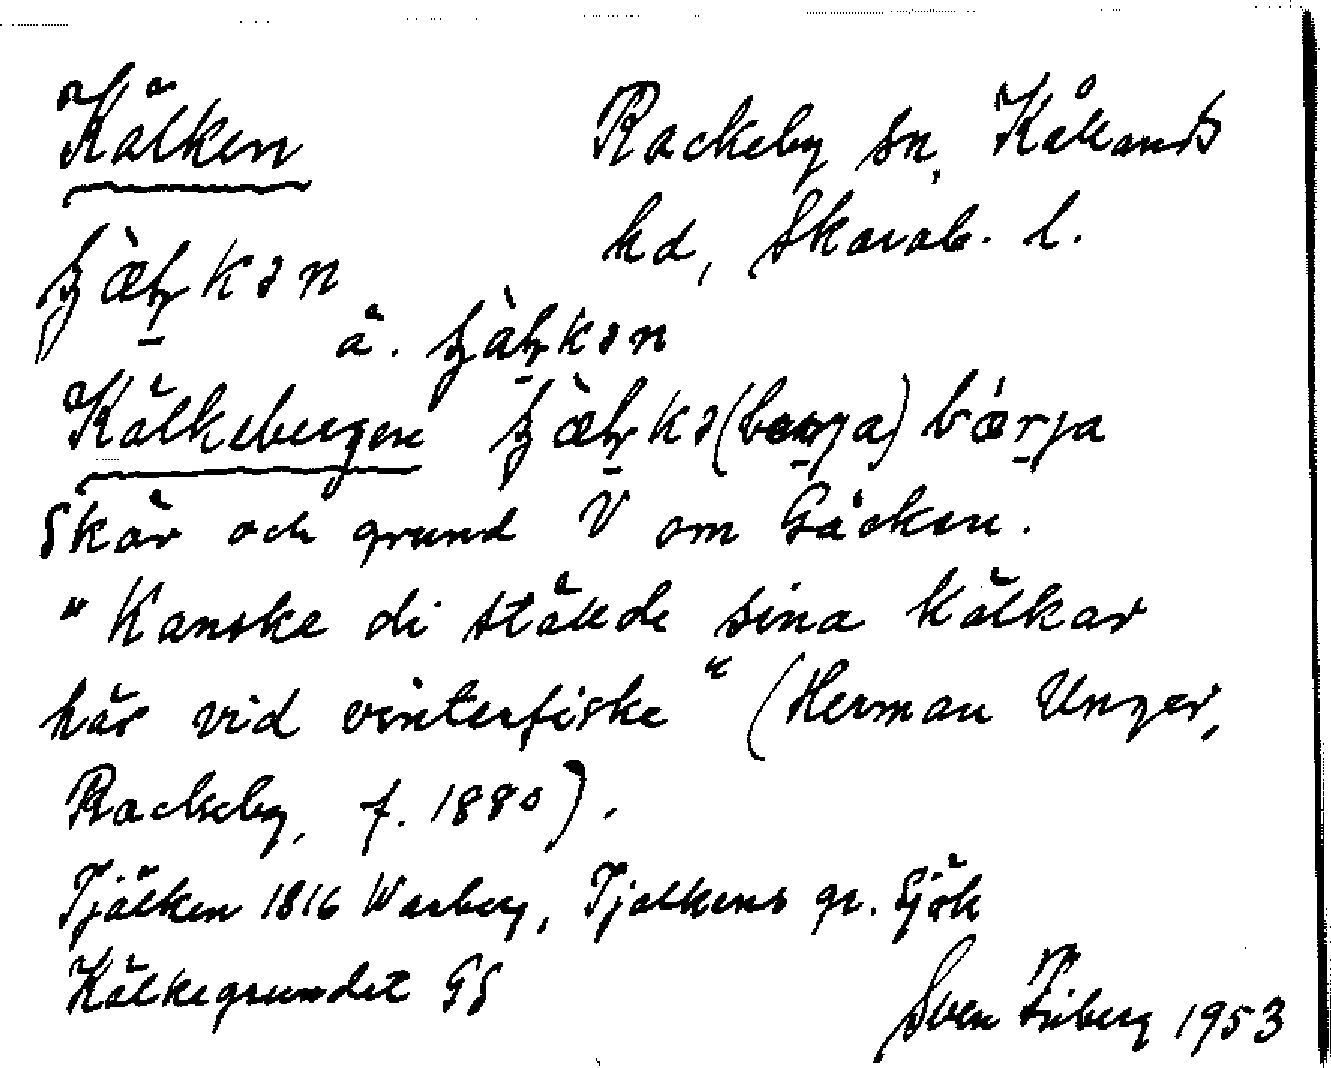 Kälken Rackeby sn, Kållands
hd, Skarab. l.
ä.
Kälkebergen
Skär och grund V om Gäcken.
"Kanske di ställde sina kälkar
här vid vinterfiske" (Herman Unger,
Rackeby, f. 1880).
Tjälken 1816 Warberg, Tjelkens gr. Sjök
Kälkegrundet GS
Sven Friberg 1953